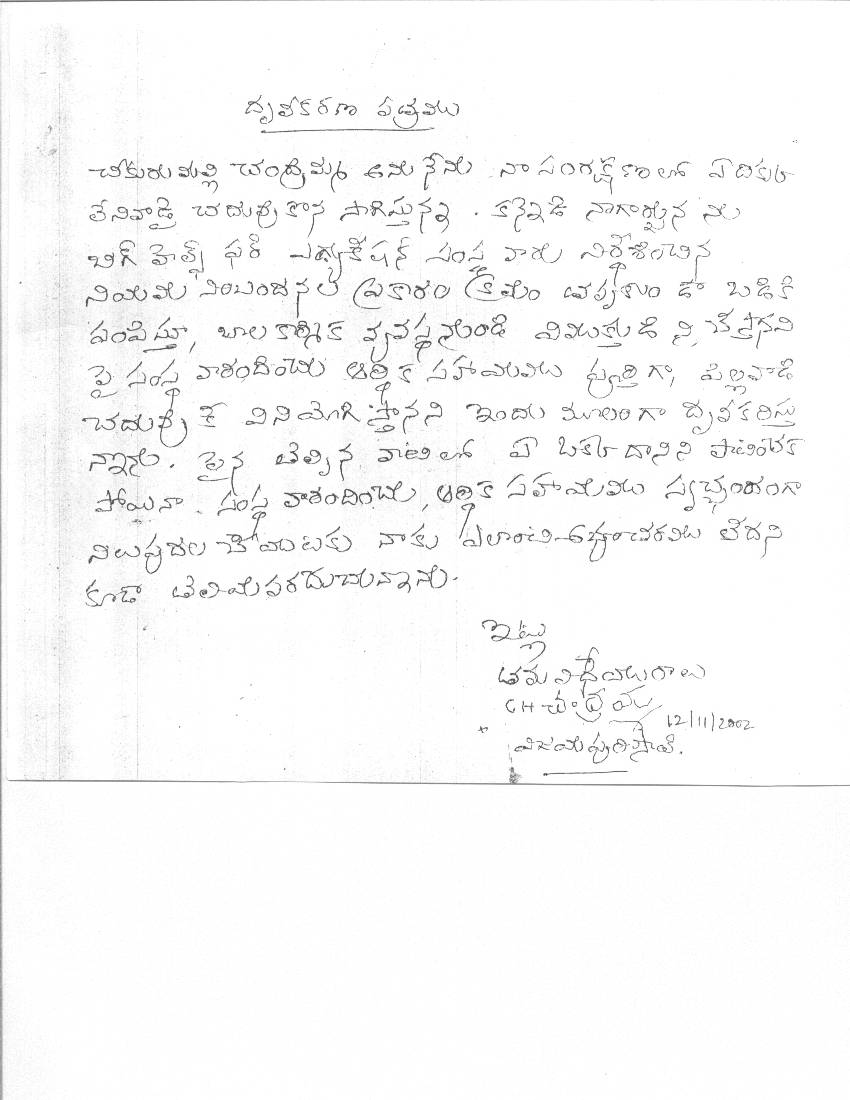 దృవీకరణ పత్రము
చీకురుమల్లి చంద్రమ్మ అను నేను నా సంరక్షణలో ఏ దిక్కు
లేనివాడై చదువుకొన సాగిస్తున్న . కన్నెబోడి నాగార్జున ను
బిగ్ హెల్ప్ ఫర్ ఎడ్యుకేషన్ సంస్థ వారు నిర్దేశించిన
నియమ నిబందనల ప్రకారం క్రమం తప్పకుండా బడికి
పంపిస్తూ, బాల కార్మిక వ్యవస్థ నుండి విముక్తుడి ని చేస్తానని
పై సంస్థ వారందించు ఆర్థిక సహాయము పూర్తిగా, పిల్లవాడి
చదువు కే వినియోగిస్తానని ఇందు మూలంగా దృవీకరిస్తు
న్నాను. పైన తెల్పిన వాటిలో ఏ ఒక్క దానిని పాటించక
పోయినా సంస్థ వారందించు, ఆర్థిక సహాయము స్వచ్ఛందంగా
నిలుపుదల చేయుటకు నాకు ఏలాంటి అభ్యంతరము లేదని
కూడా తెలియపరచుచున్నాను.
ఇట్లు
తమ విధేయులుగాలు
CH చంద్రమ్మ
12/11/2002
విజయపురిసౌత్.